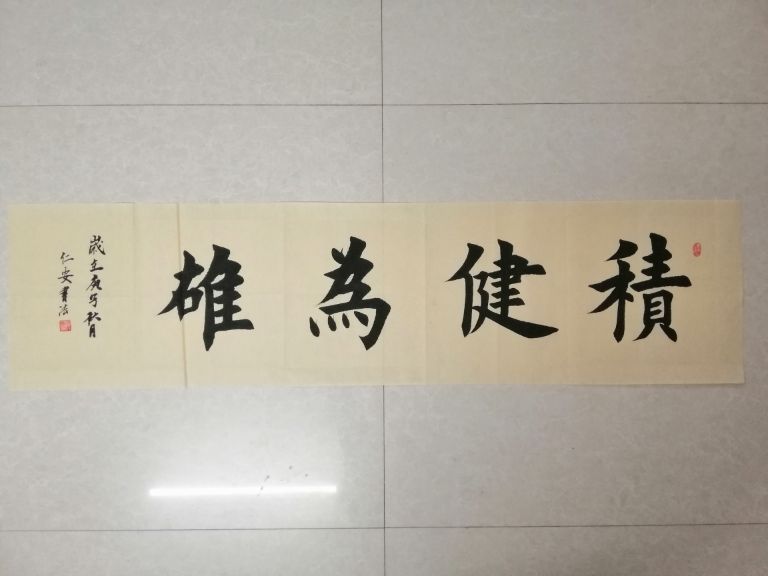 積健為雄
歲在庚子秋月
仁安書法